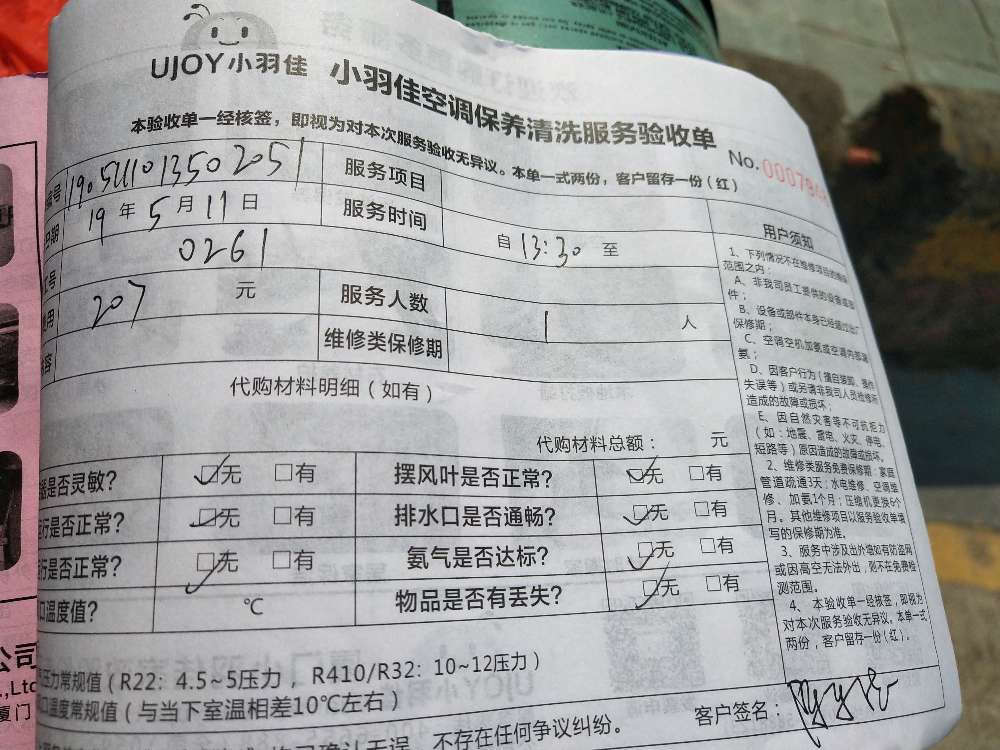 UJOY小羽佳 小羽佳空调保养清洗服务验收单
本验收单一经核签，即视为对本次服务验收无异议。本单一式两份，客户留存一份（红）
No.
号 1905111013502051 服务项目
日期 19 年 5 月 11 日 服务时间 自 13:30 至
号 0261
用 207 元 服务人数 1 人
容 维修类保修期
代购材料明细（如有）
代购材料总额： 元
器是否灵敏？ □无 □有 摆风叶是否正常？ □无 □有
行是否正常？ □无 □有 排水口是否通畅？ □无 □有
行是否正常？ □无 □有 氨气是否达标？ □无 □有
口温度值？ ℃ 物品是否有丢失？ □无 □有
压力常规值（R22：4.5~5压力，R410/R32：10~12压力）
口温度常规值（与当下室温相差10℃左右）
客户签名：
不存在任何争议纠纷。
用户须知
1、下列情况不在维修项目的维保
范围之内：
A、非我司员工提供的设备或部
件；
B、设备或部件本身已经超过出厂
保修期；
C、空调空机加氨或空调内部漏
氨；
D、因客户行为（擅自装卸、操作
失误等）或另请非我司人员维修所
造成的故障或损坏；
E、因自然灾害等不可抗拒力
（如：地震、雷电、火灾、停电、
短路等）原因造成的故障或损坏。
2、维修类服务免费保修期：家庭
管道疏通3天；水电维修、空调维
修、加氨1个月；压缩机更换6个
月。其他维修项目以服务验收单填
写的保修期为准。
3、服务中涉及出外墙如有防盗网
或因高空无法外出，则不在免费检
测范围。
4、本验收单一经核签，即视为
对本次服务验收无异议。本单一式
两份，客户留存一份（红）。
公司
.,Ltd
厦门